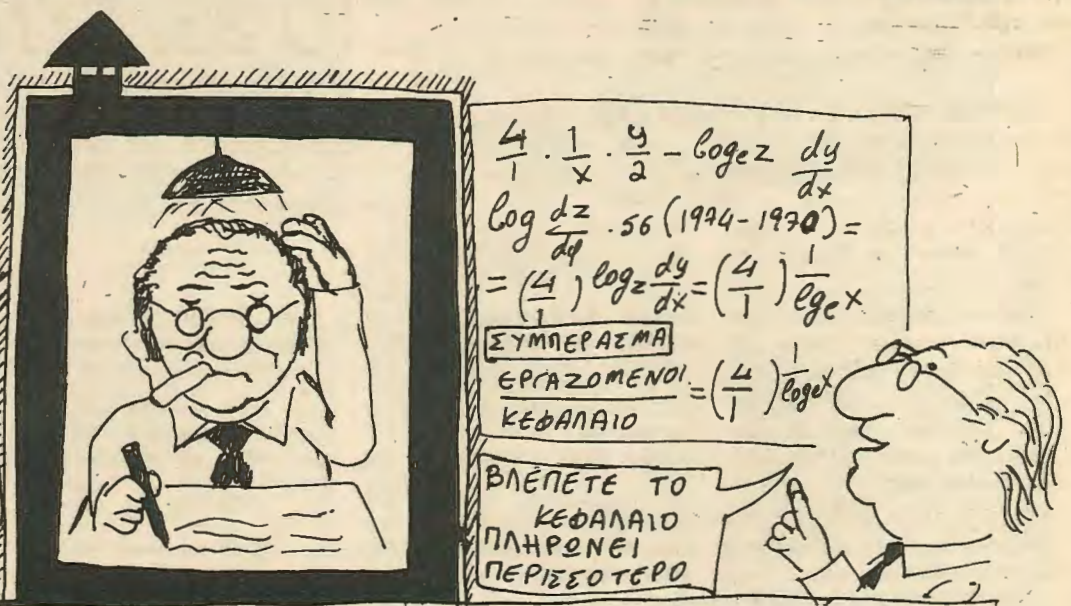 4/1 · 1/x · y/2 − logₑz dy/dx
log dz/dφ · 56 (1974-1970) =
= (4/1) logz dy/dx = (4/1) 1/lgₑx
ΣΥΜΠΕΡΑΣΜΑ
ΕΡΓΑΖΟΜΕΝΟΙ/ΚΕΦΑΛΑΙΟ = (4/1) 1/logₑx
ΒΛΕΠΕΤΕ ΤΟ
ΚΕΦΑΛΑΙΟ
ΠΛΗΡΩΝΕΙ
ΠΕΡΙΣΣΟΤΕΡΟ